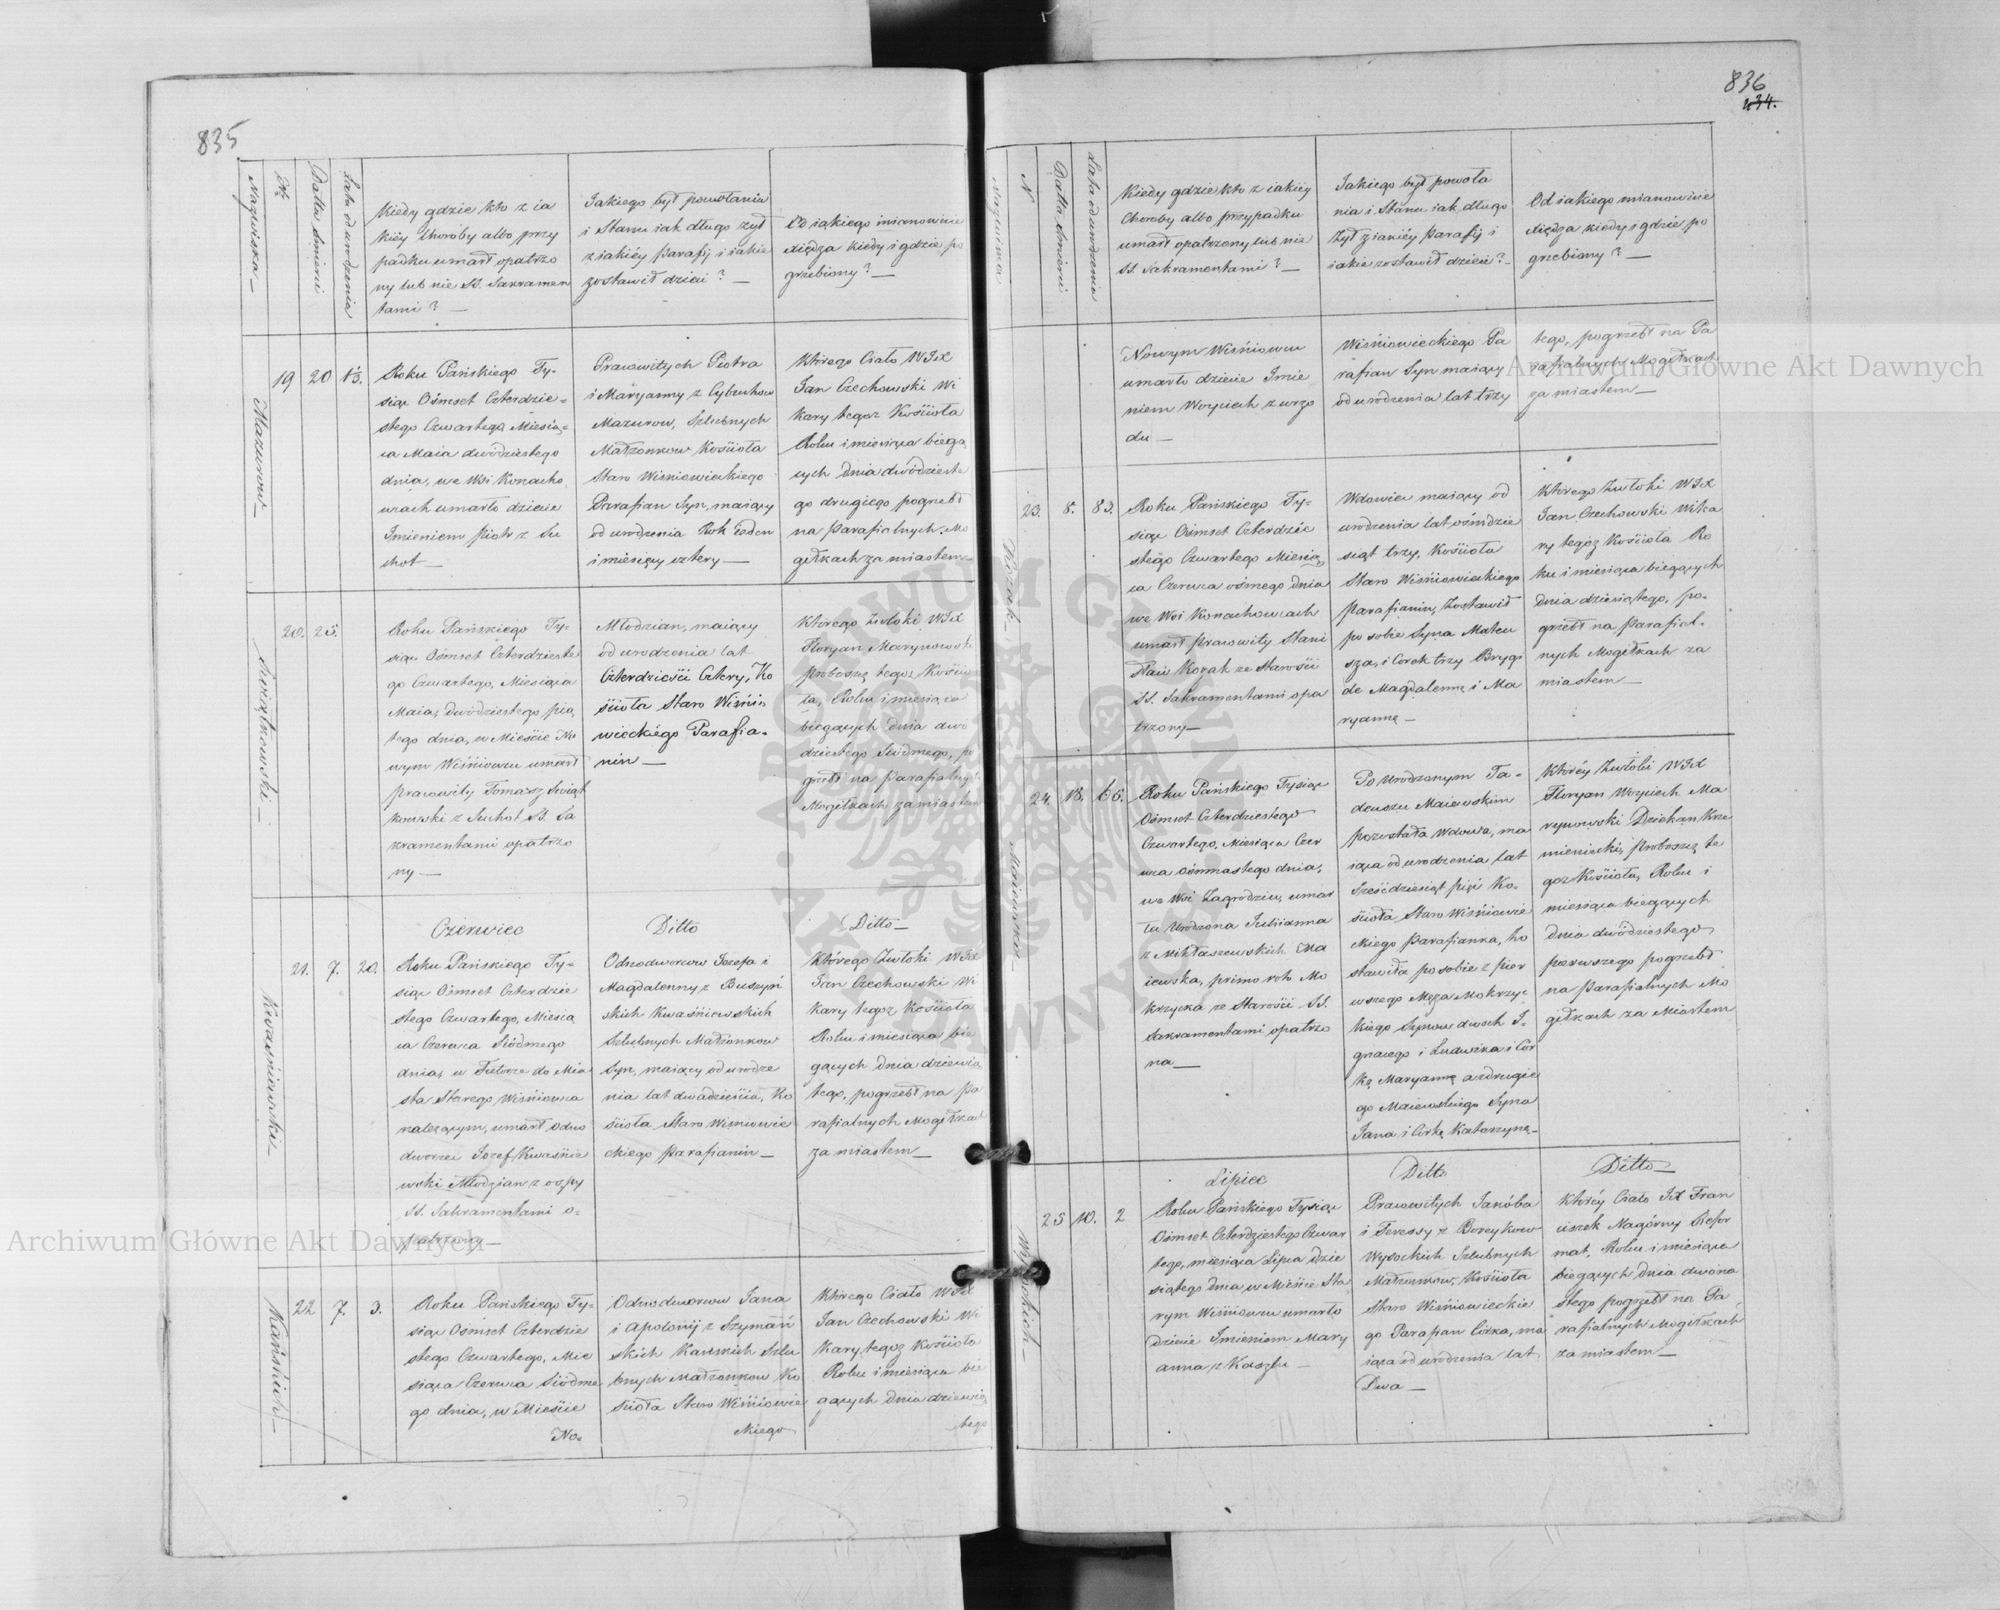 835
Nazwiska
№
Datta śmierci
Lata od urodzenia
Kiedy gdzie kto z ia
kiéy Choróby albo przy
padku umarł opatrzo
ny lub nie SS. Sakramen
tami? —
Jakiego był powołania
i Stanu iak długo żył
z iakiéy Parafij i iakie
zostawił dzieci? —
Od iakiego mianowicie
xiędza kiedy i gdzie po
grzebiony? —
Mazurow
19
20
Roku Pańskiego Ty-
siąc Ośmset Czterdzie-
stego Czwartego Miesią-
ca Maia dwódziestego
dnia, we Wsi Konacho
wcach umarło dziecie
Imieniem Piotr z Su
chot —
Pracowitych Piotra
i Maryanny z Cybuchow
Mazurow, Szlubnych
Małżonkow Kościoła
Staro Wiśniowieckiego
Parafian Syn, maiący
od urodzenia Rok ieden
i miesięcy cztery —
Którego Ciało WJX
Jan Czechowski Wi
kary tegoż Kościoła
Roku i miesiąca biegą
cych dnia dwódzieste
go drugiego pogrzebł
na Parafialnych Mo
giłkach za miastem —
Świątkowski —
20.
25.
Roku Pańskiego Ty-
siąc Ośmset Czterdzieste
go Czwartego, Miesiąca
Maia, dwódziestego pią
tego dnia, w Mieście No
wym Wiśniowcu umarł
pracowity Tomasz Świąt
kowski z Suchot SS. Sa
kramentami opatrzo
ny —
Młodzian, maiący
od urodzenia lat
Czterdzieści Cztery, Ko
ścioła Staro Wiśnio
wieckiego Parafia-
nin —
Którego Zwłoki WJX
Floryan Marynowski
Proboszcz tegoż Kościo
ła, Roku i miesiąca
biegących dnia dwó
dziestego Siódmego, po
grzebł na Parafialnych
Mogiłkach za miastem
Kwaśniewski
21.
7.
20.
Czerwiec
Roku Pańskiego Ty-
siąc Ośmset Czterdzie
stego Czwartego, Miesią
ca Czerwca Siódmego
dnia, w Futorze do Mia
sta Starego Wiśniowca
należącym, umarł odno
dworzec Jozef Kwaśnie
wski Młodzian z ospy
SS. Sakramentami o-
patrzony —
Ditto
Odnodworcow Jozefa i
Magdalenny z Buszyń
skich Kwaśniewskich
Szlubnych Małżonkow
Syn, maiący od urodze
nia lat dwadzieścia, Ko
ścioła Staro Wiśniowie
ckiego Parafianin —
Ditto —
Którego Zwłoki WJX
Jan Czechowski Wi
kary tegoż Kościoła
Roku i miesiąca bie
gących dnia dziewią
tego, pogrzebł na Pa
rafialnych Mogiłkach
za miastem —
Kańskich —
22
7.
3.
Roku Pańskiego Ty-
siąc Ośmset Czterdzie
stego Czwartego, Mie
siąca Czerwca Siódme
go dnia, w Mieście
No-
Odnodworcow Jana
i Apolonij z Szymań
skich Kańskich Szlu
bnych Małżonkow Ko
ścioła Staro Wiśniowie
ckiego
Którego Ciało WJX
Jan Czechowski Wi
kary tegoż Kościoła
Roku i miesiąca bie
gących dnia dziewią
tego
836
434.
Nazwiska
N
Datta śmierci
Lata od urodzenia
Kiedy gdzie kto z iakiéy
Choroby albo przypadku
umarł opatrzony lub nie
SS. Sakramentami? —
Jakiego był powoła
nia i Stanu iak długo
żył z iakiéy Parafij i
iakie zostawił dzieci? —
Od iakiego mianowicie
xiędza kiedy i gdzie po
grzebiony? —
Nowym Wiśniowcu
umarło dziecie Imie
niem Woyciech z urzo
du —
Wiśniowieckiego Pa
rafian Syn maiący
od urodzenia lat trzy
tego, pogrzebł na Pa
rafialnych Mogiłkach
za miastem —
23.
8.
83.
Roku Pańskiego Ty-
siąc Ośmset Czterdzie
stego Czwartego Miesią
ca Czerwca ośmego dnia
we Wsi Konachowcach
umarł Pracowity Stani
sław Korah ze Starości
SS. Sakramentami opa
trzony —
Wdowiec maiący od
urodzenia lat ośmdzie
siąt trzy, Kościoła
Staro Wiśniowieckiego
Parafianin, Zostawił
po sobie Syna Mateu
sza, i Corek trzy Brygi
de Magdalennę i Ma
ryannę —
Którego Zwłoki WJX
Jan Czechowski Wika
ry tegoż Kościoła Ro
ku i miesiąca biegących
dnia dziesiątego, po-
grzebł na Parafial-
nych Mogiłkach za
miastem —
Maiewska —
24.
18.
Roku Pańskiego Tysiąc
Ośmset Czterdziestego
Czwartego, Miesiąca Czer
wca ośmnastego dnia,
we Wsi Zagrodziu, umar
ła Urodzona Julianna
z Mikłaszewskich Ma
iewska, primo voto Mo
krzycka ze Starości SS.
Sakramentami opatrzo
na —
Po Urodzonym Ta-
deuszu Maiewskim
pozostała Wdowa, ma
iąca od urodzenia lat
Sześćdziesiąt pięć Ko-
ścioła Staro Wiśniowie
ckiego Parafianka, Zo
stawiła po sobie z pier
wszego Męża Mokrzyc
kiego Synow dwóch I-
gnacego i Ludwika i Cór
kę Maryannę a z drugie
go Maiewskiego Syna
Jana i Córkę Katarzynę —
Któréy Zwłoki WJX
Floryan Woyciech Ma
rynowski Dziekan Krze
mieniecki, Proboszcz te
goż Kościoła, Roku i
miesiąca biegących
dnia dwódziestego
pierwszego pogrzebł
na Parafialnych Mo
giłkach za Miastem
Wysockich —
25
10.
2
Lipiec
Roku Pańskiego Tysiąc
Ośmset Czterdziestego Czwar
tego, miesiąca Lipca dzie
siątego dnia, w Mieście Sta
rym Wiśniowcu umarło
Dziecie Imieniem Mary
anna z Kaszlu —
Ditto
Pracowitych Jakóba
i Teressy z Boreykow
Wysockich Szlubnych
Małżonkow, Kościoła
Staro Wiśniowieckie
go Parafian Córka, ma
iąca od urodzenia lat
Dwa —
Ditto —
Któréy Ciało JX Fran
ciszek Nagórny Refor
mat, Roku i miesiąca
biegących dnia dwóna
stego pogrzebł na Pa
rafialnych Mogiłkach
za miastem —
Archiwum Główne Akt Dawnych
Archiwum Główne Akt Dawnych
ARCHIWUM GŁÓWNE AKT DAWNYCH